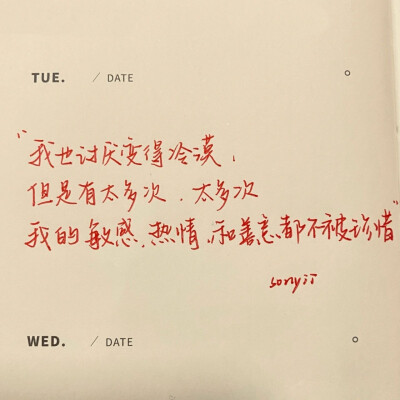 TUE. / DATE
"我也讨厌变得冷漠，
但是有太多次，太多次
我的敏感，热情，和善意都不被珍惜"
sonyii
WED. / DATE